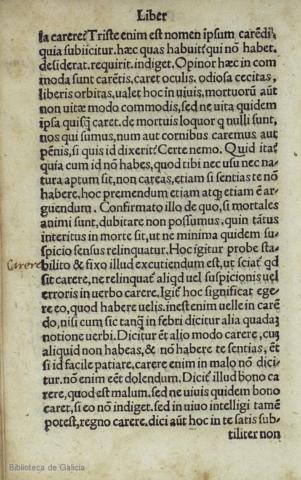 Liber
la carere? Triste enim est nomen ipsum carēdi,
quia subiicitur. hæc quas habuit? qui nō habet.
desiderat. requirit. indiget. Opinor hæc in com
moda sunt carētis. caret oculis. odiosa cecitas,
liberis orbitas, ualet hoc in uiuis, mortuorū aūt
non uitæ modo commodis, sed ne uita quidem
ipsa quisq̄ caret. de mortuis loquor q nulli sunt,
nos qui sumus, num aut cornibus caremus aut
pēnis, si quis id dixerit? Certe nemo. Quid ita?
quia cum id nō habes, quod tibi nec usu nec na-
tura aptum sit, non careas, etiam si sentias te nō
habere, hoc premendum etiam atq; etiam ē ar-
guendum. Confirmato illo de quo, si mortales
animi sunt, dubitare non possumus, quin tātus
interitus in morte sit, ut ne minima quidem su-
spicio sensus relinquatur. Hoc igitur probe sta-
Carere
bilito & fixo illud excutiendum est, ut sciat qd
sit carere, ne relinquat aliqd uel suspicionis uel
erroris in uerbo carere. Igit hoc significat ege-
re eo, quod habere uelis. inest enim uelle in carē
do, nisi cum sic tanq̄ in febri dicitur alia quadā
notione uerbi. Dicitur ēt alio modo carere, cum
aliquid non habeas, & nō habere te sentias, ēt
si id facile patiare. carere enim in malo nō dici-
tur. nō enim eēt dolendum. Dicit illud bono ca
rere, quod est malum. sed ne uiuis quidem bono
caret, si eo nō indiget. sed in uiuo intelligi tamē
potest, regno carere. dici aūt hoc in te satis sub-
tiliter non
Biblioteca de Galicia